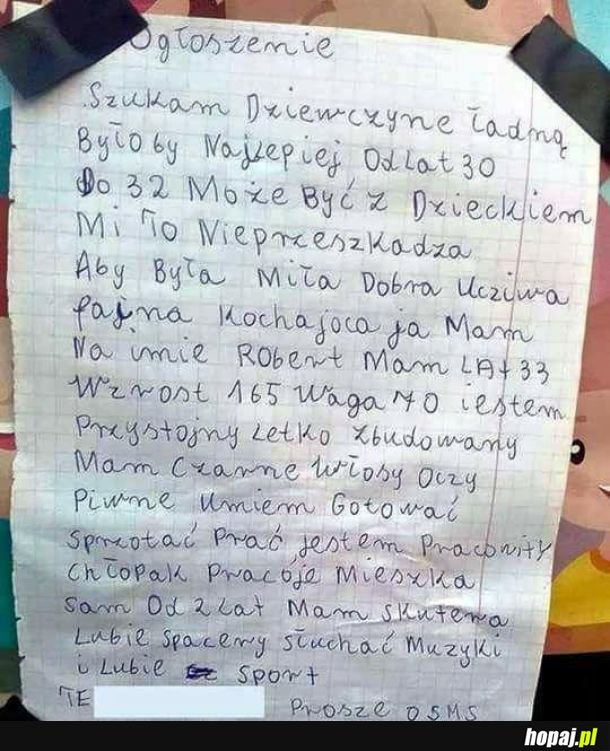 Ogłoszenie
Szukam Dziewczyne Ładną
Było by Najlepiej Od Lat 30
Do 32 Może Być z Dzieckiem
Mi To Nieprzeszkadza
Aby Była Miła Dobra Ucziwa
fajna Kochajoca ja Mam
Na imie Robert Mam LAt 33
Wzrost 165 Waga 70 iestem
Przystojny Letko Zbudowany
Mam Czarne Włosy Oczy
Piwne Umiem Gotować
Sprzotać Prać jestem Pracowity
Chłopak Pracoje Mieszka
Sam Od 2 Lat Mam Skutera
Lubie Spacery Słuchać Muzyki
i Lubie Sport
TE
Prosze o SMS
hopaj.pl